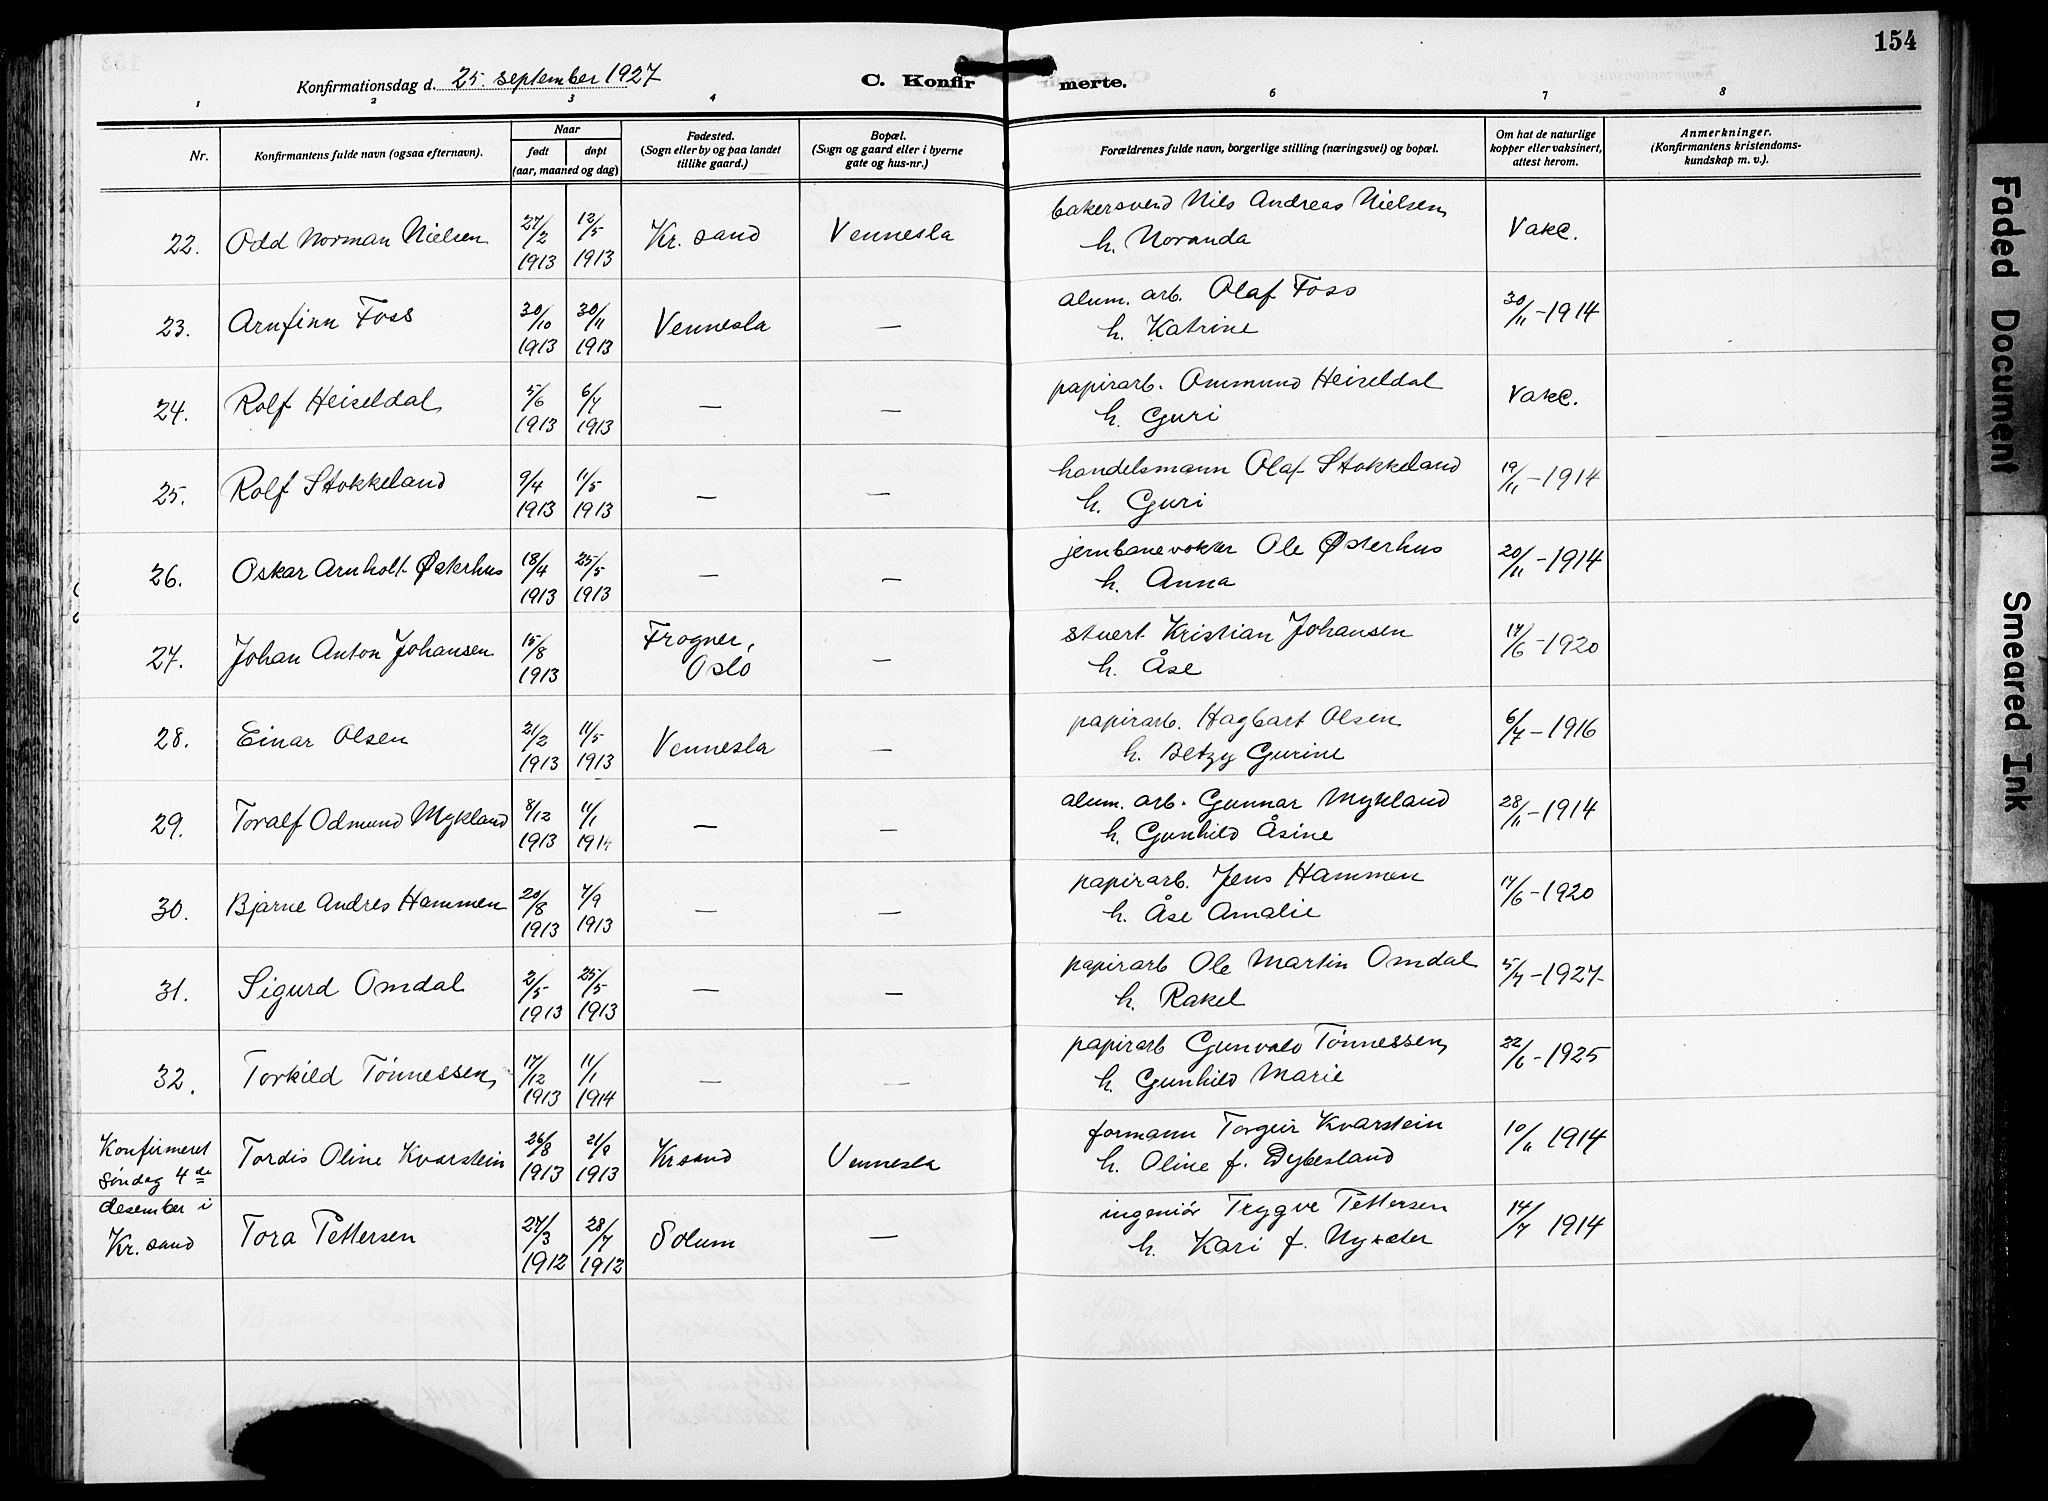 154
Konfirmationsdag d. 25. september 1927
C. Konfir merte.
1 2 3 4 6 7 8
Nr.
Konfirmantens fulde navn (ogsaa efternavn).
Naar
født
døpt
(aar, maaned og dag)
Fødested.
(Sogn eller by og paa landet
tillike gaard.)
Bopæl.
(Sogn og gaard eller i byerne
gate og hus-nr.)
Forældrenes fulde navn, borgerlige stilling (næringsvei) og bopæl.
Om hat de naturlige
kopper eller vaksinert,
attest herom.
Anmerkninger.
(Konfirmantens kristendoms-
kundskap m. v.).
22. Odd Norman Nielsen 27/2 1913 12/5 1913 Kr. sand Vennesla bakersvend Nils Andreas Nielsen
h. Noranda Vakc.
23. Arnfinn Foss 30/10 1913 30/11 1913 Vennesla — alum. arb. Olaf Foss
h. Katrine 30/11 - 1914
24. Rolf Heiseldal 5/6 1913 6/7 1913 — — papirarb. Ommund Heiseldal
h. Guri Vakc.
25. Rolf Stokkeland 9/4 1913 11/5 1913 — — handelsmann Olaf Stokkeland
h. Guri 19/11 - 1914
26. Oskar Arnholt Østerhus 18/4 1913 25/5 1913 — — jernbanevokter Ole Østerhus
h. Anna 20/11 - 1914
27. Johan Anton Johansen 15/8 1913 Frogner, Oslo — stuert Kristian Johansen
h. Åse 17/6 - 1920
28. Einar Olsen 21/2 1913 11/5 1913 Vennesla — papirarb. Hagbart Olsen
h. Betzy Gurine 6/7 - 1916
29. Toralf Odmund Mykland 8/12 1913 11/1 1914 — — alum. arb. Gunnar Mykland
h. Gunhild Åsine 28/11 - 1914
30. Bjarne Andres Hammen 20/8 1913 7/9 1913 — — papirarb. Jens Hammen
h. Åse Amalie 17/6 - 1920
31. Sigurd Omdal 2/5 1913 25/5 1913 — — papirarb Ole Martin Omdal
h. Rakel 5/7 - 1927-
32. Torkild Tønnessen 17/12 1913 11/1 1914 — — papirarb Gunvald Tønnessen
h. Gunhild Marie 22/6 - 1925
Konfirmeret
søndag 4de
desember i
Kr. sand
Tordis Oline Kvarstein 26/8 1913 21/9 1913 Kr sand Vennesla formann Torgeir Kvarstein
h. Oline f. Dybesland 10/11 1914
Tora Pettersen 27/3 1912 28/7 1912 Solum — ingeniør Trygve Pettersen
h. Kari f. Nysæter 14/7 1914
Faded Document
Smeared Ink